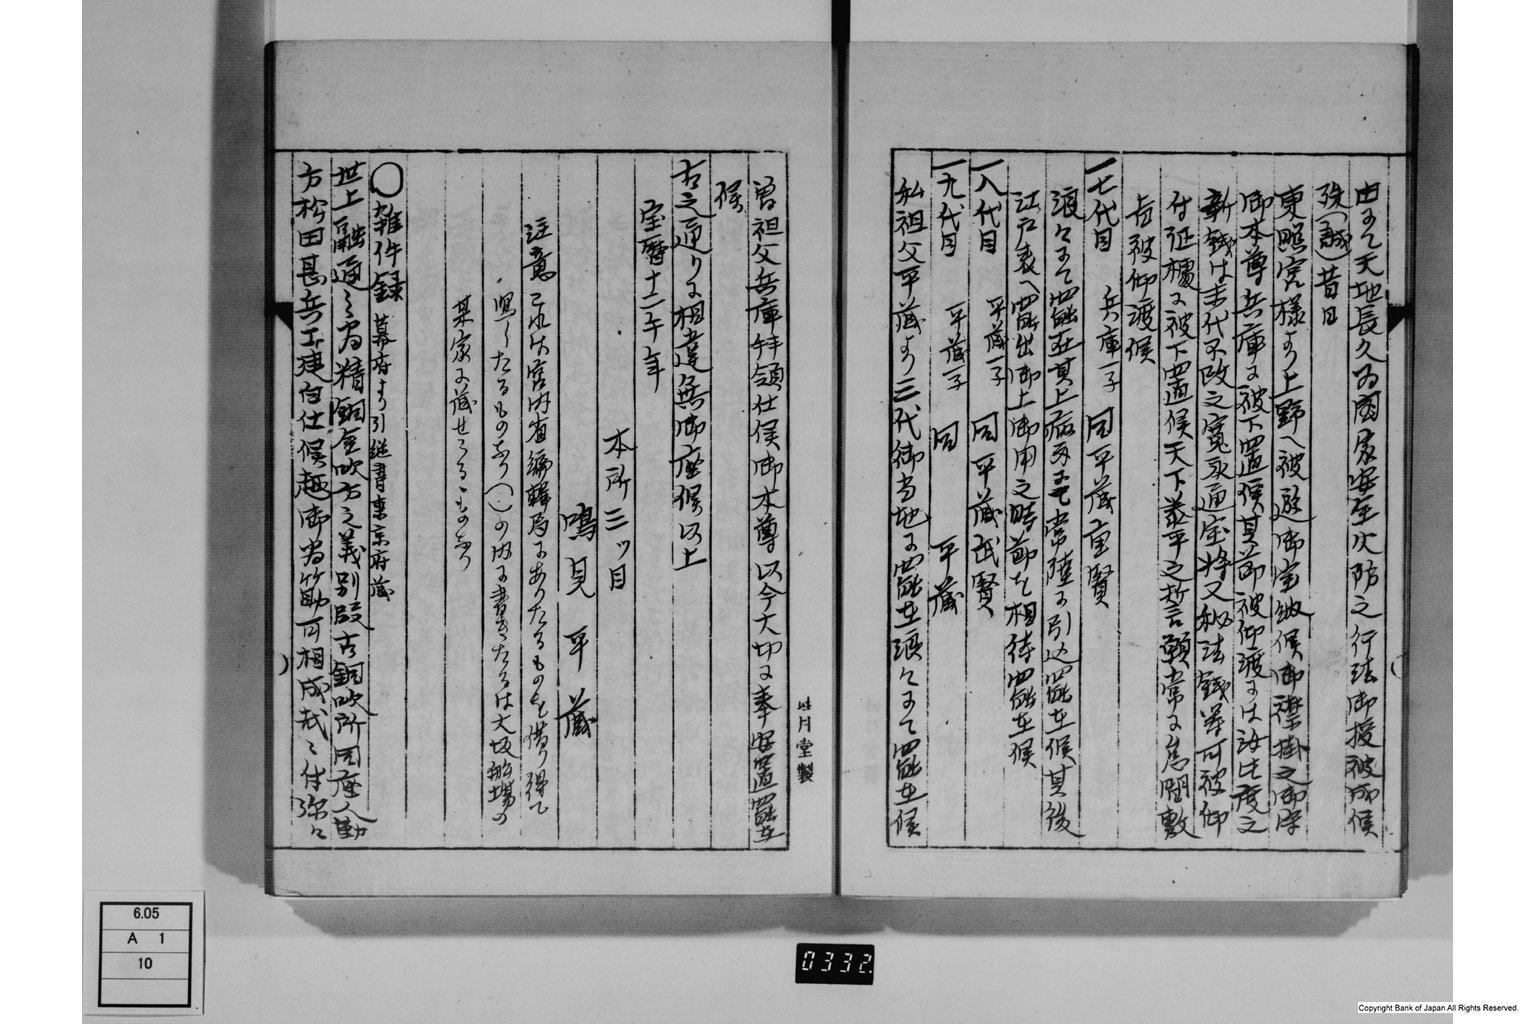 由にて天地長久為国家安全火防之行法御授被成候
殊(誠)昔日
東照宮様より上野へ被遊御宝納候御襟掛之御守
御本尊兵庫に被下置候其節被仰渡には汝此度之
新銭は末代不改之寛永通宝将又秘法銭等可被仰
付証櫃に被下置候天下泰平之誓言願常に怠間敷
旨被仰渡候
一七代目 兵庫子 同平蔵重賢
浪々にて罷在其上病身にて常陸に引込罷在候其後
江戸表へ罷出御上御用之時節を相待罷在候
一八代目 平蔵子 同平蔵武賢
一九代目 平蔵子 同 平蔵
私祖父平蔵より三代御当地に罷在浪々にて罷在候
曽祖父兵庫拝領仕候御本尊以今大切に奉安置罷在
候
右之通りに相違無御座候以上
宝暦十二午年
本所三ツ目
鳴見平蔵
注意 これは宮内省編輯局にありたるものを借り得て
写したるものなり( )の内に書きたるは大坂船場の
某家に蔵せらるゝもの也
○雑件録 幕府より引継書東京府蔵
世上融通之為精銅金吹方之義別段古銅吹所同座人勘
方松田甚兵工建白仕候趣御為筋可相成哉之付弥々
廿月堂製
6.05
A 1
10
0332.
Copyright Bank of Japan All Rights Reserved.